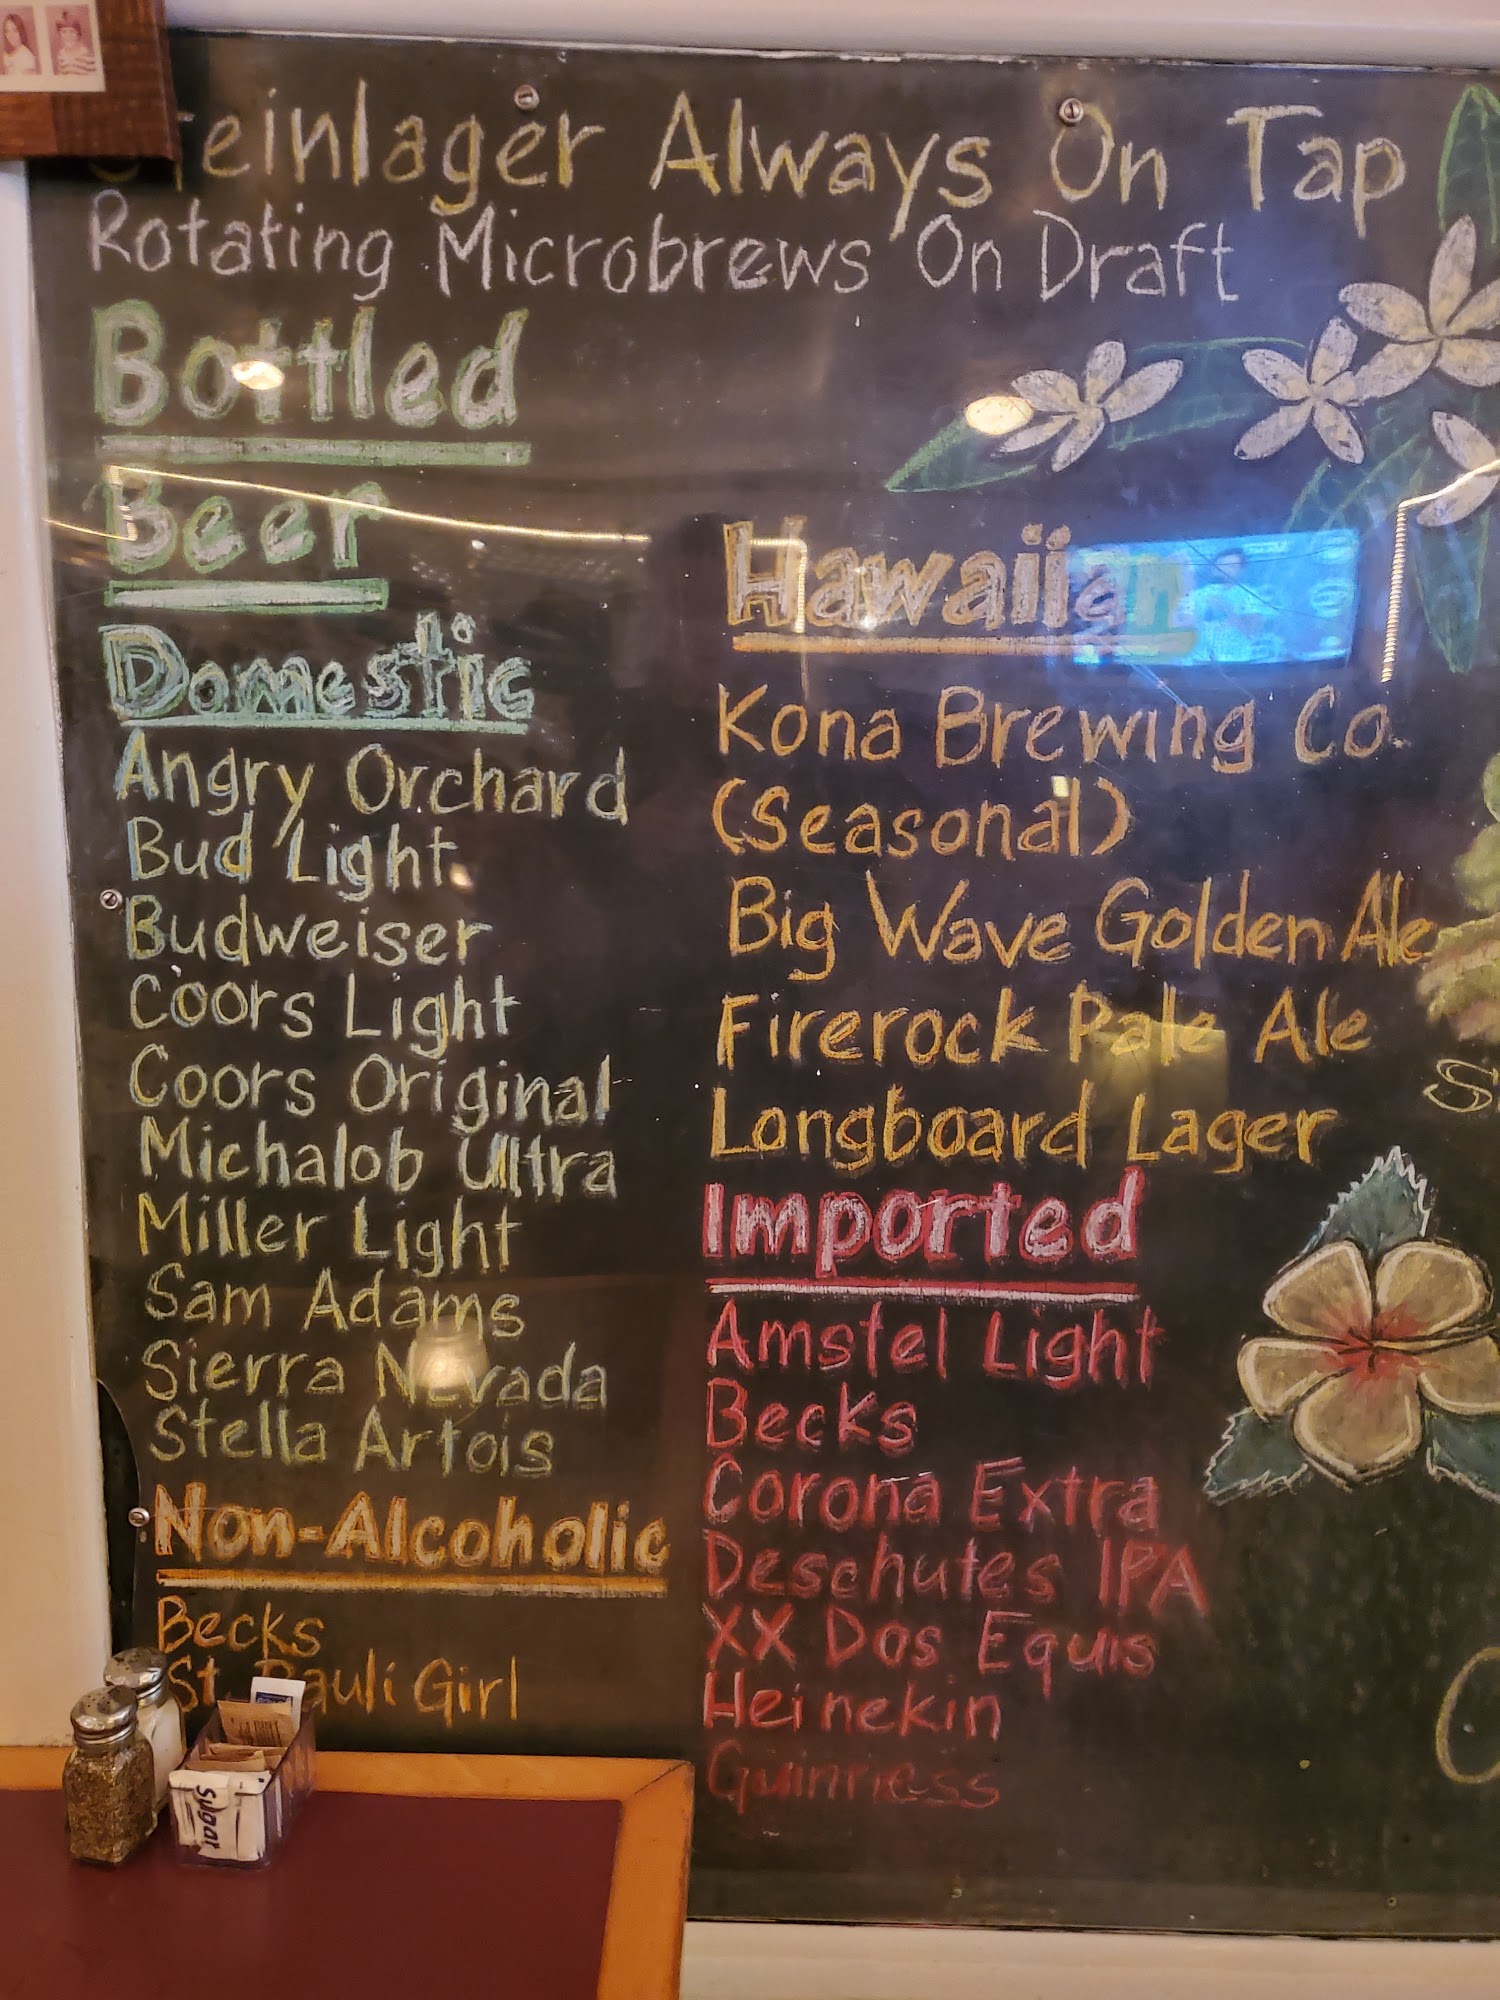 Steinlager Always On Tap
Rotating Microbrews On Draft
Bottled
Beer
Domestic
Angry Orchard
Bud Light
Budweiser
Coors Light
Coors Original
Michalob Ultra
Miller Light
Sam Adams
Sierra Nevada
Stella Artois
Non-Alcoholic
Becks
St. Pauli Girl
Hawaiian
Kona Brewing Co.
(Seasonal)
Big Wave Golden Ale
Firerock Pale Ale
Longboard Lager
Imported
Amstel Light
Becks
Corona Extra
Deschutes IPA
XX Dos Equis
Heinekin
Guinness
sugar